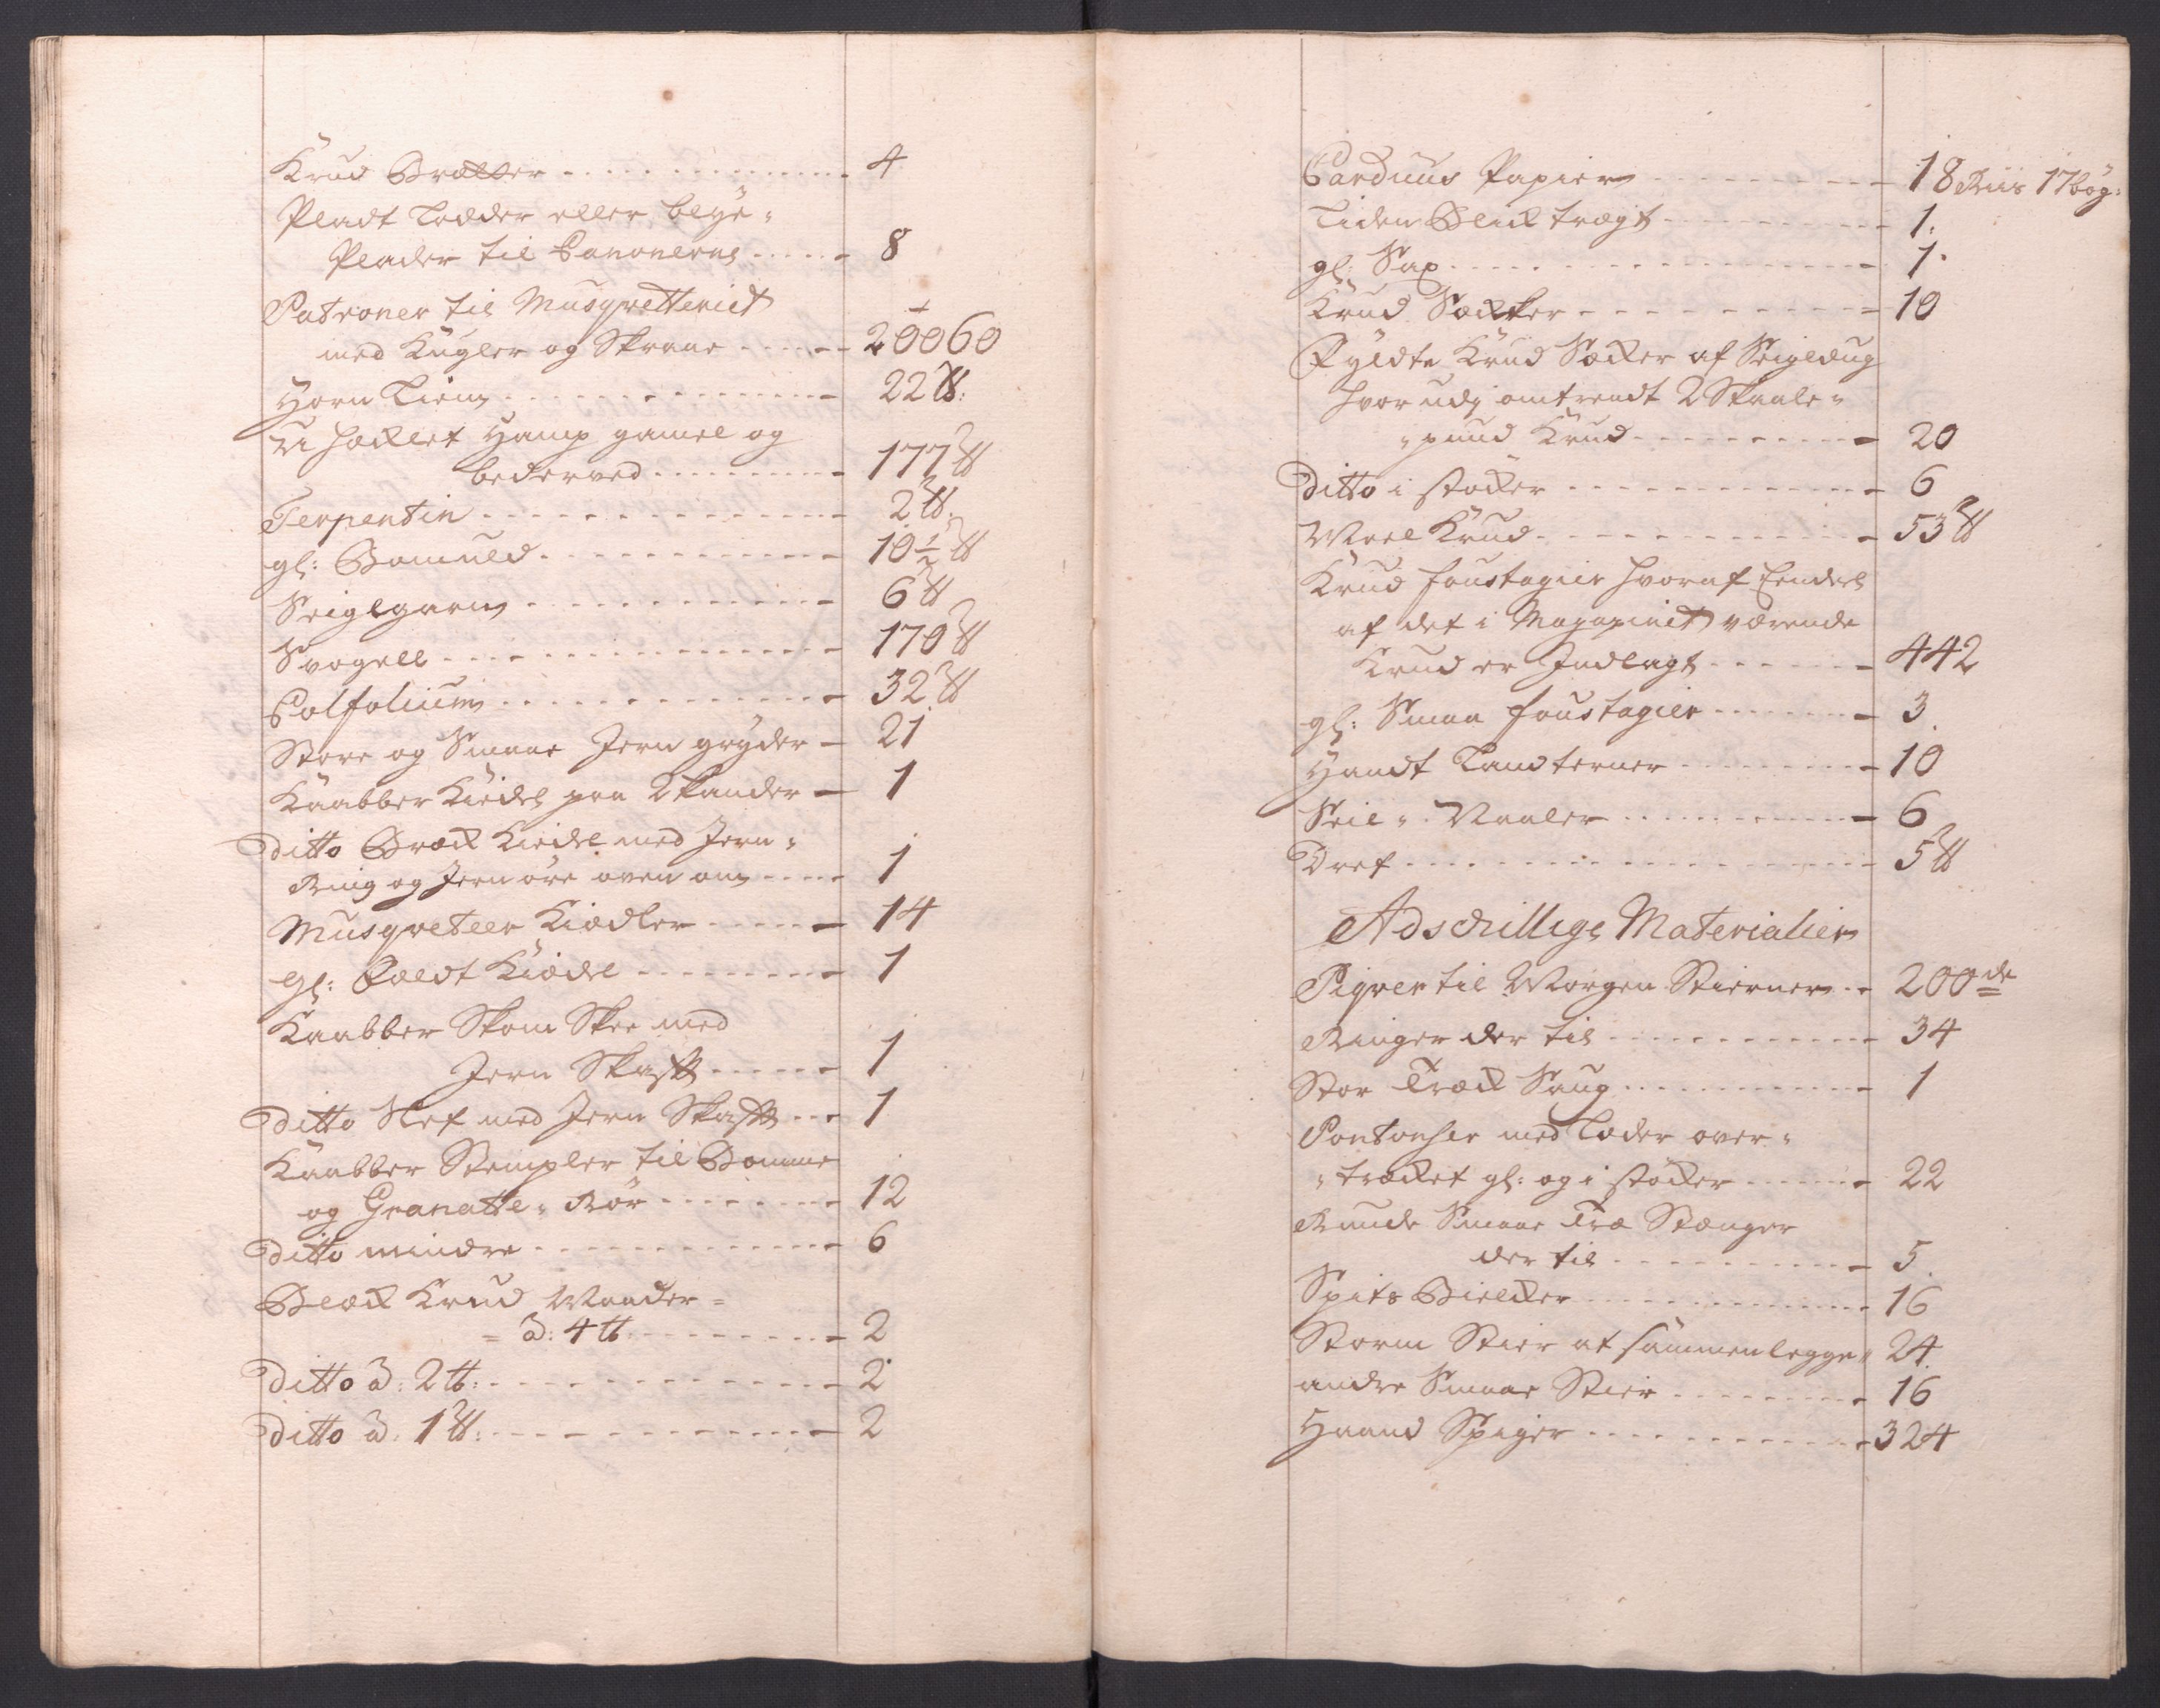 Krud Brætter - - - 4
Pladt Lodder eller blye-
Plader til Canonerne - - - 8
Patroner til Musqvetteriet
med Kugler og Skraae - - - 20060
Horn Liem - - - 22 ℔:
U hæklet Hamp gamel og
bederved - - - 177 ℔
Terpentin - - - 2 ℔.
gl: Bomuld - - - 10½ ℔
Seiglgarn - - - 6 ℔
Svogell - - - 170 ℔
Colfolium - - - 32 ℔
Store og Smaae Jern gryder - 21
Kaabber Kiedel paa 2 kander - 1
Ditto Bræck Kiedel med Jern-
Ring og Jern öre oven om - - - 1
Musqveteer Kiedler - - - 14
gl: Feldt Kiedel - - - 1
Kaabber Skom Skee med
Jern Skafft - - - 1
Ditto Slef med Jern Skafft - - - 1
Kaabber Stempler til Bomme
og Granatte-Rör - - - 12
Ditto mindre - - - 6
Bleck Krud Maader =
= â: 4 ℔ - - - 2
Ditto â: 2 ℔: - - - 2
Ditto â: 1 ℔: - - - 2
Carduus Papier - - - 18 Riis 17 bög:
Liden Blick tragt - - - 1.
gl: Sax - - - 1.
Krud Sækker - - - 10
Fyldte Krud Sæcker af Seigldug
hvor udj omtrendt 2 Skaale-
-pund Krud - - - 20
Ditto i stöcker - - - 6
Meel Krud - - - 53 ℔
Krud foustagier hvoraf Eendeel
af det i Magazinet værende
Krud er Indlagt - - - 442
gl: Smaa foustagier - - - 3.
Handt Landterner - - - 10
Seil-Naaler - - - 6
Dref - - - 5 ℔
Adschillige Materialier
Piqver til Morgen Stierner - - 200de
Ringer der til - - - 34
Stor Træck Saug - - - 1
Pontonser med Læder over-
-trecket gl: og i stöcker - - - 22
Runde Smaae Træ Stænger
der til - - - 5.
Spits Bielcker - - - 16
Storm Stier at sammenlegge - 24.
andre Smaae Stier - - - 16
Haand Spiger - - - 324